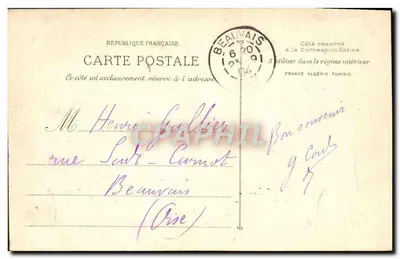 RÉPUBLIQUE FRANÇAISE
CARTE POSTALE
Ce côté est exclusivement réservé à l'adresse
BEAUVAIS
6 20
23 - 9
04
Côté réservé
à la Correspondance
A utiliser dans le régime intérieur
FRANCE ALGÉRIE TUNISIE
M Henri
rue Sadi-Carnot
Beauvais
(Oise)
Bon souvenir
CPAPHIL.com